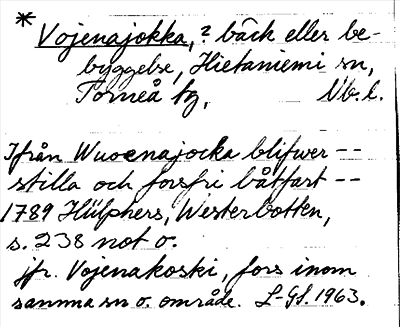 * Vojenajokka, ? bäck eller be-
byggelse, Hietaniemi sn,
Torneå tg, Nb. l.
Ifrån Wuoenajocka blifwer --
stilla och forsfri båtfart --
1789 Hülphers, Westerbotten,
s. 238 not o.
jfr. Vojenakoski, fors inom
samma sn o. område. L-Gl. 1963.